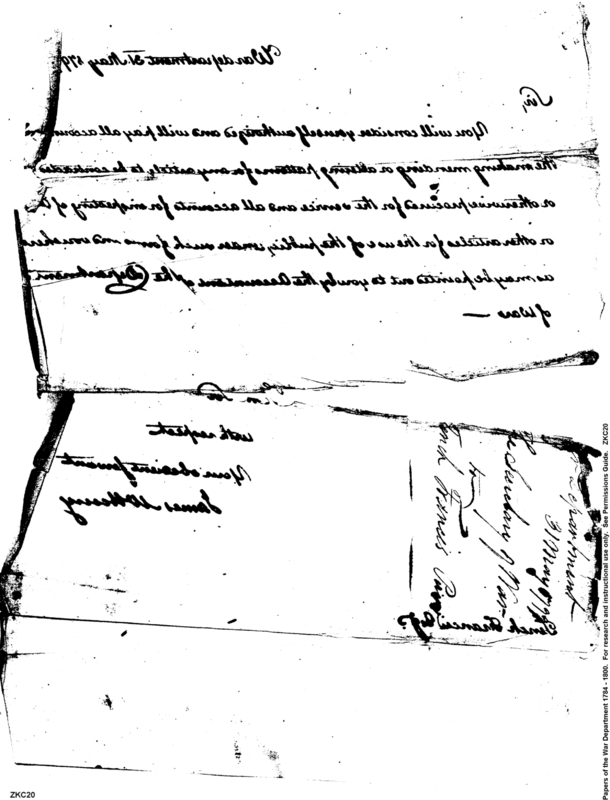 War department 31 May 179
Sir,
You will consider yourself authorized and will pay all accounts
the making mending or altering patterns for any article to be conducted
or otherwise procured for the service and all accounts for inspecting of
or other articles for the use of the public, under such forms and vouchers
as may be pointed out to you by the Accountant of the Department
of War —
with respect
Your obedient servant
James McHenry
Department
31 May
Secretary of War
to
Tench Francis
Tench Francis Esqr.
Papers of the War Department 1784 - 1800. For research and instructional use only. See Permissions Guide. ZKC20
ZKC20